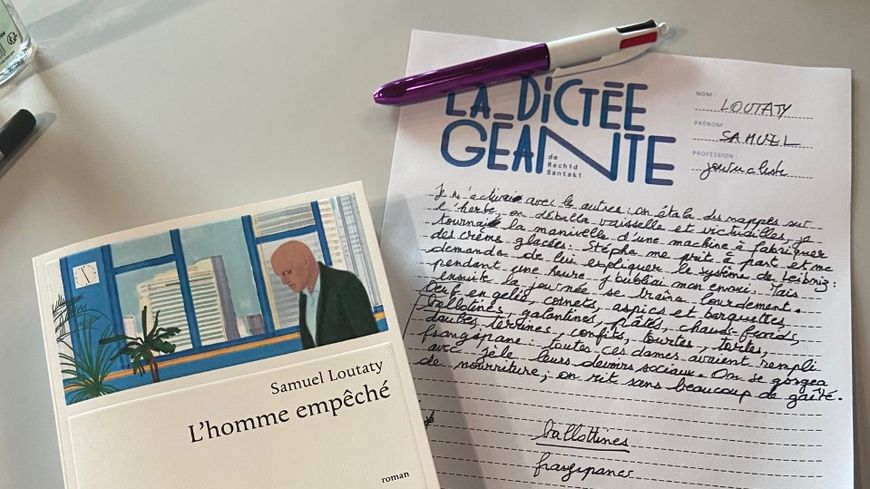 LA DiCTÉE
GÉANTE
de
Rachid
Santaki
NOM :
LOUTATY
PRÉNOM :
SAMUEL
PROFESSION :
journaliste
Je m'activai avec les autres : on étala des nappes sur
l'herbe, on déballa vaisselle et victuailles, je
tournai la manivelle d'une machine à fabriquer
des crème glacées. Stépha me prit à part et me
demanda de lui expliquer le système de Leibniz :
pendant une heure, j'oubliai mon ennui. Mais
ensuite la journée se traîna lourdement.
Œuf en gelée, cornets, aspics et barquettes,
ballotines, galantines, pâtés, chauds-froids,
daubes, terrines, confits, tourtes, tartes,
frangipane : toutes ces dames avaient rempli
avec zèle leurs devoirs sociaux. On se gorgea
de nourriture ; on rit sans beaucoup de gaîté.
ballottines
frangipanes
Samuel Loutaty
L'homme empêché
roman